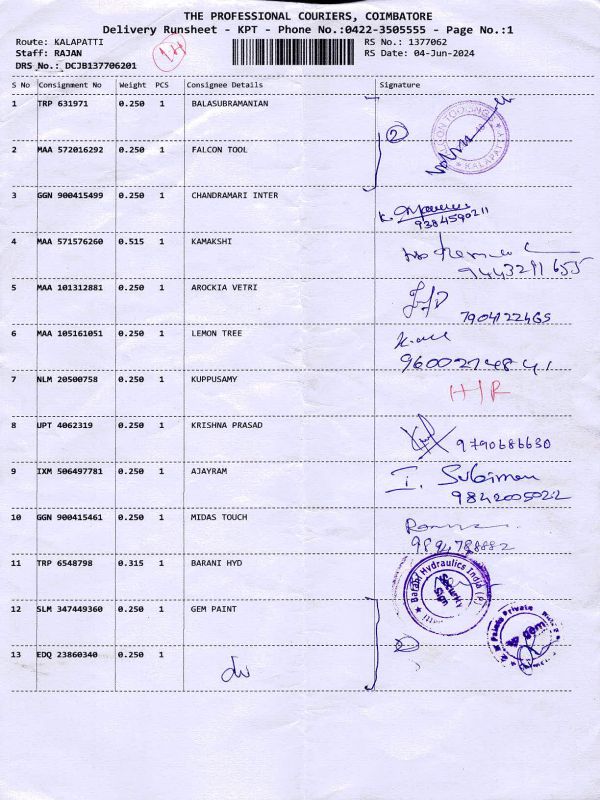 THE PROFESSIONAL COURIERS, COIMBATORE
Delivery Runsheet - KPT - Phone No.:0422-3505555 - Page No.:1
Route: KALAPATTI RS No.: 1377062
Staff: RAJAN RS Date: 04-Jun-2024
DRS No.: DCJB137706201
S No Consignment No Weight PCS Consignee Details Signature
1 TRP 631971 0.250 1 BALASUBRAMANIAN
2
KALAPATTI
2 MAA 572016292 0.250 1 FALCON TOOL
3 GGN 900415499 0.250 1 CHANDRAMARI INTER
9384590211
4 MAA 571576260 0.515 1 KAMAKSHI
9443291655
5 MAA 101312881 0.250 1 AROCKIA VETRI
7904122465
6 MAA 105161051 0.250 1 LEMON TREE
9600274841
7 NLM 20500758 0.250 1 KUPPUSAMY
H/R
8 UPT 4062319 0.250 1 KRISHNA PRASAD
9790686630
9 IXM 506497781 0.250 1 AJAYRAM
I. Sulaiman
9842005022
10 GGN 900415461 0.250 1 MIDAS TOUCH
9894788882
11 TRP 6548798 0.315 1 BARANI HYD
Barani Hydraulics India (P)
Security
Sign
12 SLM 347449360 0.250 1 GEM PAINT
gem
13 EDQ 23860340 0.250 1